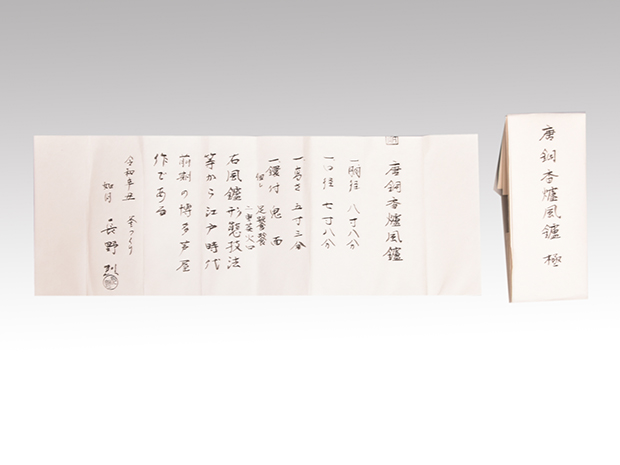 唐銅香爐風鑪
一胴径 八寸八分
一口径 七寸八分
一高さ 五寸三分
一鐶付 鬼面
但し 足
二重
右風鑪形態技法
等から江戸時代
前期の博多芦屋
作である
令和辛丑 釜つくり
如月 長野烈
唐銅香爐風鑪 極